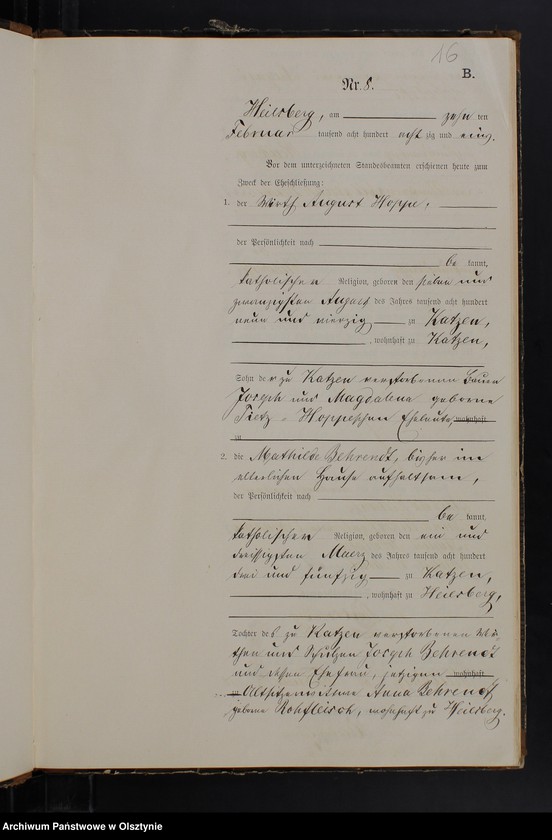 16
B.
Nr. 8.
Heilsberg, am zehn ten
Februar tausend acht hundert acht zig und eins.
Vor dem unterzeichneten Standesbeamten erschienen heute zum
Zweck der Eheschließung:
1. der Wirth August Hoppe,
der Persönlichkeit nach
be kannt,
katholischer Religion, geboren den sieben und
zwanzigsten August des Jahres tausend acht hundert
neun und vierzig zu Katzen,
, wohnhaft zu Katzen,
Sohn der zu Katzen verstorbenen Bauer
Joseph und Magdalena geborne
Tietz - Hoppeschen Eheleute, wohnhaft
zu
2. die Mathilde Behrendt, bisher im
elterlichen Hause aufhaltsam,
der Persönlichkeit nach
be kannt,
katholischer Religion, geboren den ein und
dreissigsten Maerz des Jahres tausend acht hundert
drei und fünfzig zu Katzen,
, wohnhaft zu Heilsberg,
Tochter des zu Katzen verstorbenen Wir-
then und Schulzen Joseph Behrendt
und dessen Ehefrau, jetzigen wohnhaft
zu Altsitzerwittwe Anna Behrendt,
geborne Rohfleisch, wohnhaft zu Heilsberg.
Archiwum Państwowe w Olsztynie